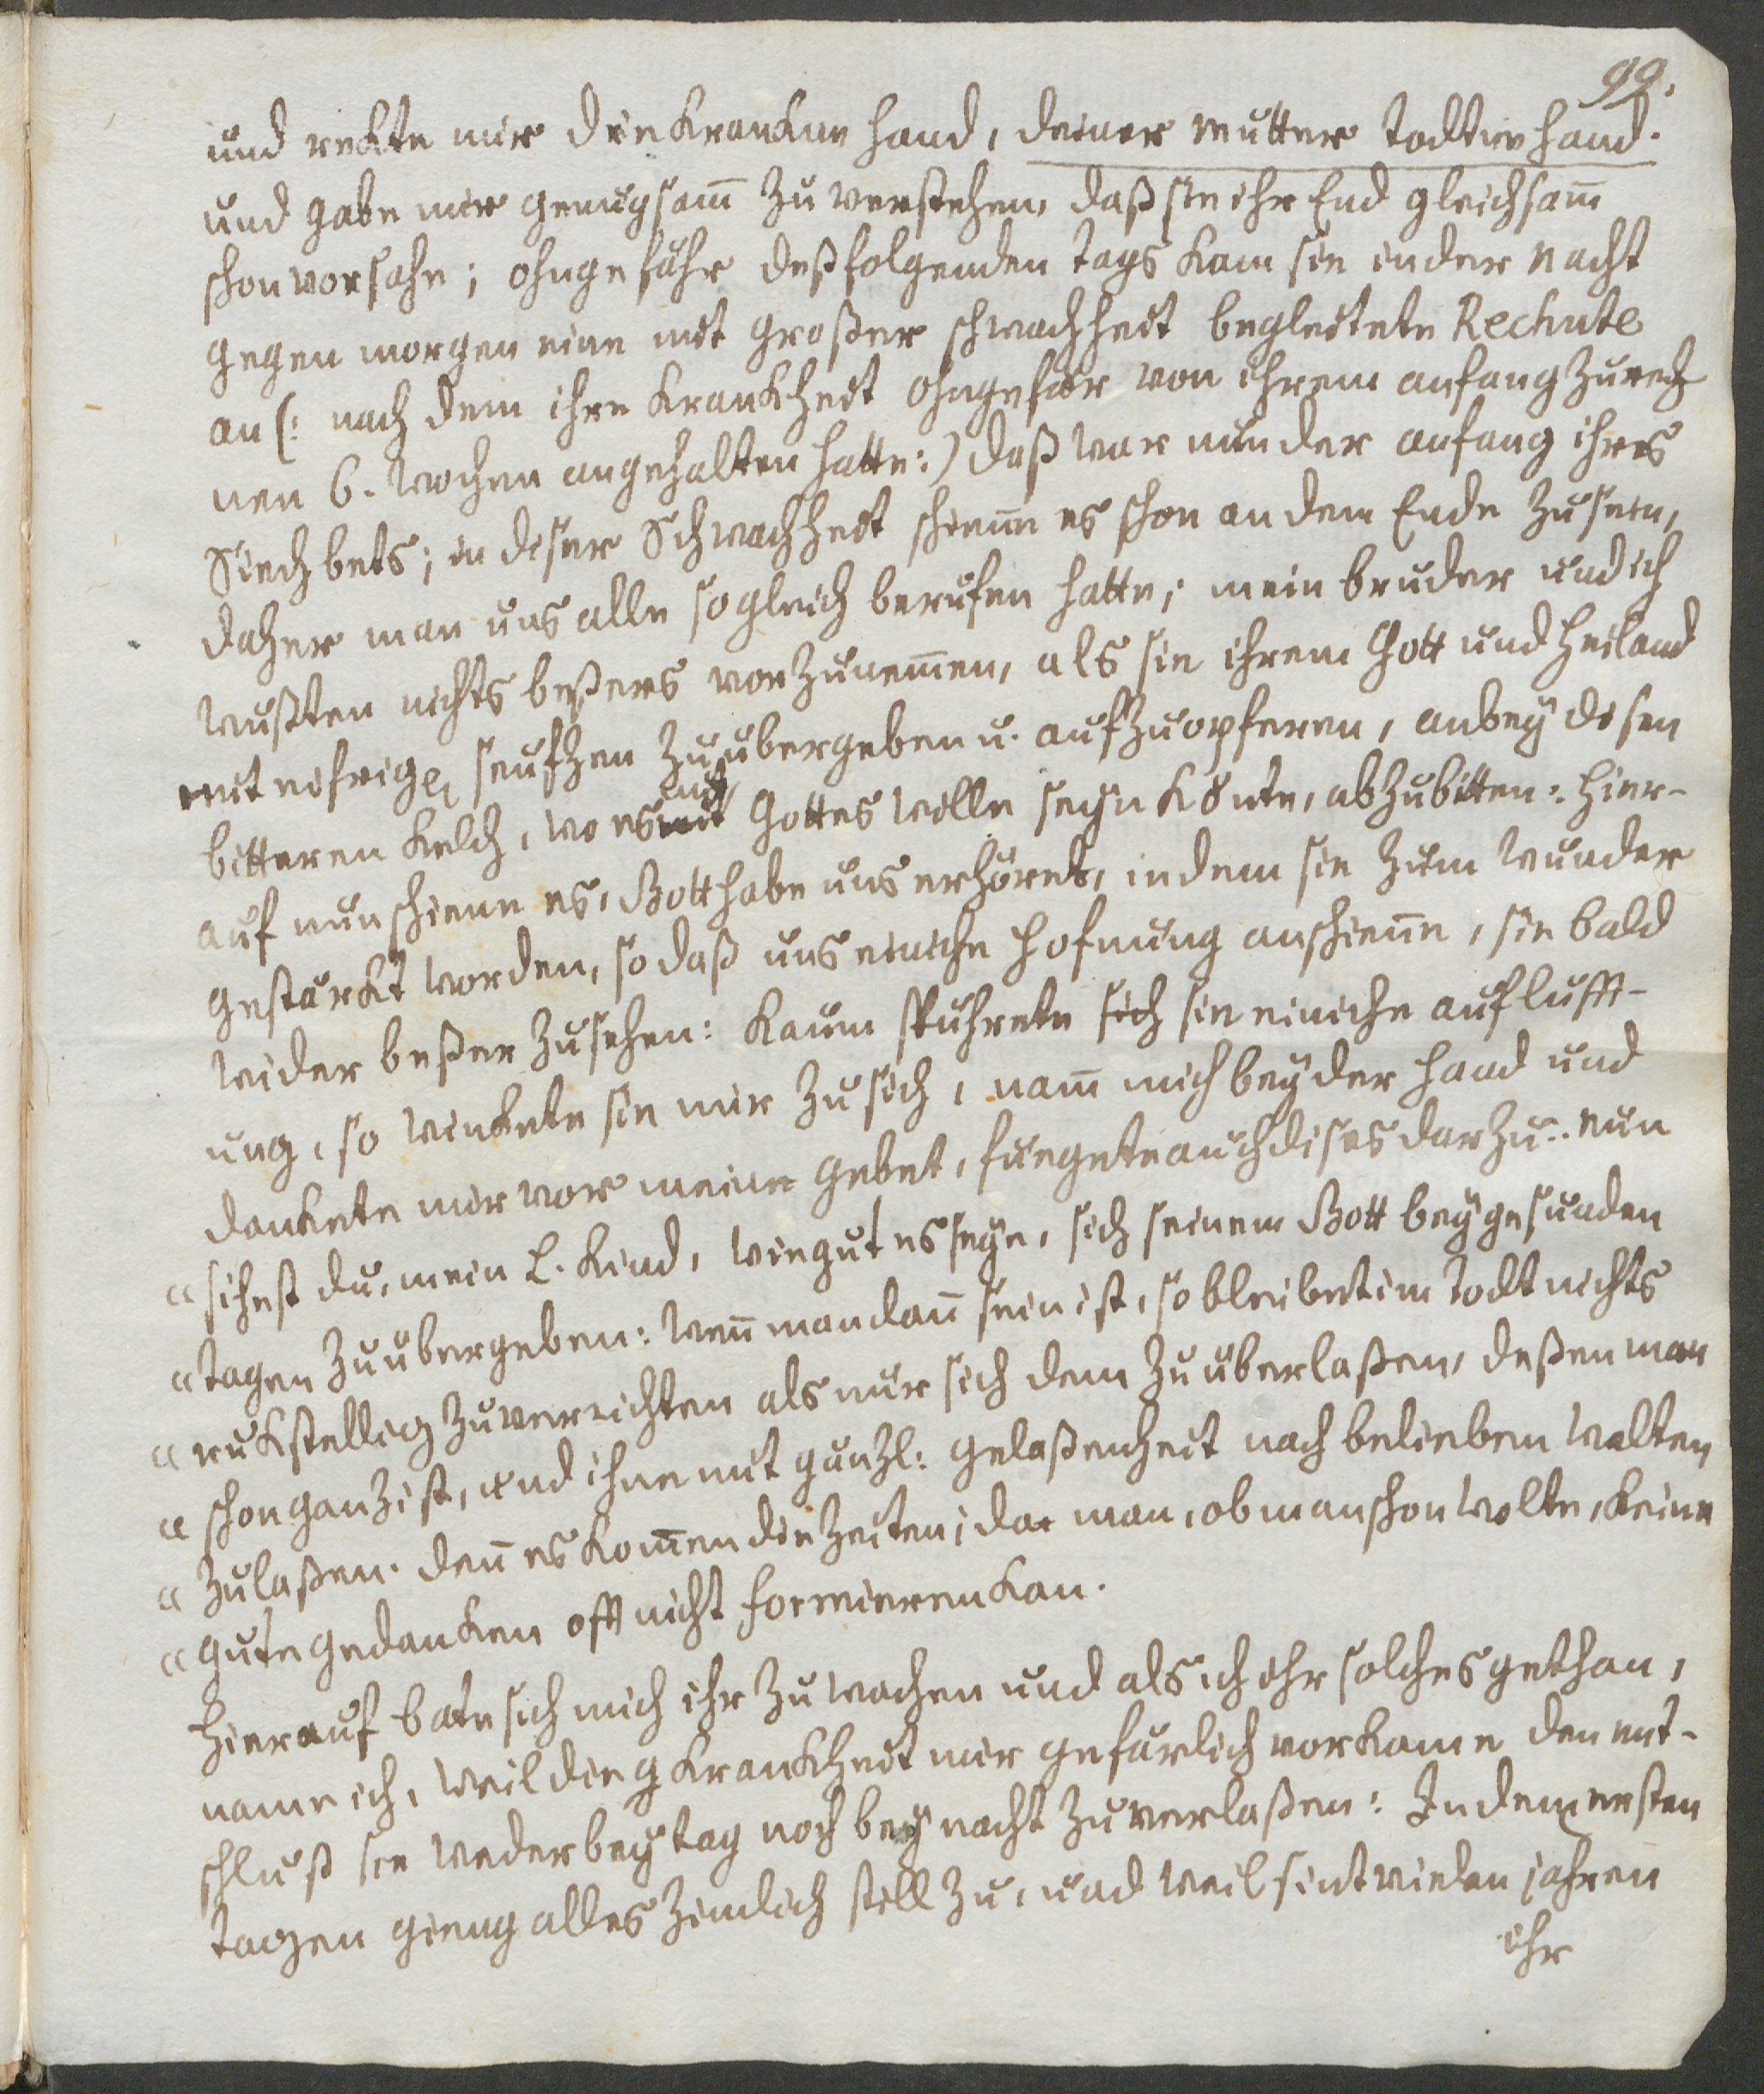 99.
und rekte mir die Kranken hand, deiner mutter Todten hand.
und gabe mir genugsam̄ zu verstehen, daß sie ihr End gleichsam̄
schon vorsahe; ohngefähr deß folgenden tags kam sie in der nacht
gegen morgen eine mit großer schwachheit begleitete Rechute
an (: nach dem ihre Krankheit ohngefär von ihrem anfang zu rech
nen 6. wochen angehalten hatte:) daß war nun der anfang ihres
Siechbets; in diser Schwachheit schien̄e es schon an dem Ende zu sein,
daher man uns alle sogleich berufen hatte; mein bruder und ich
wußten nichts beßers vorzunem̄en, als sie ihrem Gott und Heiland
mit eifrigen seufzen zu übergeben u. aufzuopferen, anbey disen
bitteren Kelch, wo es mit Gottes wille seyn könte, abzubitten: hier-
auf nun schiene es, Gott habe uns erhöret, indem sie zum wunder
gestärkt worden, so daß uns einiche hofnung anschien̄e, sie bald
wider beßer zu sehen: kaum spührete sich sie einiche auflufft-
ung, so winkete sie mir zu sich, nam̄ mich bey der hand und
dankete mir vor meine gebet, fuegete auch dises darzu: nun
" sihest du, mein l. Kind, wie gut es seye, sich seinem Gott bey gesunden
" tagen zu übergeben: wen̄ man dan̄ sein ist, so bleibet im todt nichts
" rukstellig zu verrichten als nur sich dem zu überlaßen, deßen man
" schon ganz ist, und ihne mit gänzl: gelaßenheit nach belieben walten
" zulaßen. den̄ es kom̄en die zeiten, da man, ob man schon wolte, keine
" gute gedanken offt nicht formieren kan.
Hierauf bate sich mich ihr zu wachen und als ich ihr solches gethan,
name ich, weil die Krankheit mir gefärlich vorkame den ent-
schluß sie weder bey tag noch bey nacht zu verlaßen: In dem ersten
tagen gieng alles zimlich still zu, und weil sint vielen jahren
ihr